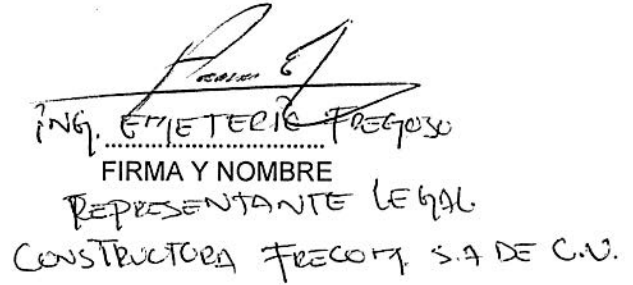 ING. EMETERIO FREGOSO
FIRMA Y NOMBRE
REPRESENTANTE LEGAL
CONSTRUCTORA FRECOM, S.A DE C.V.